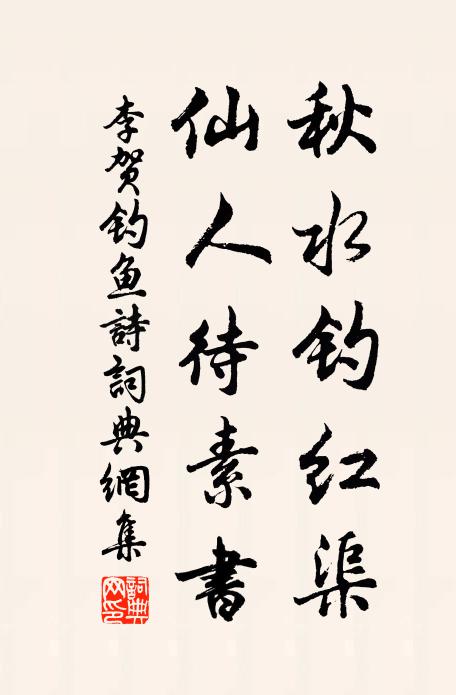 秋水钓红渠
仙人待素書
李贺钓鱼詩詞典網集
詞典网印